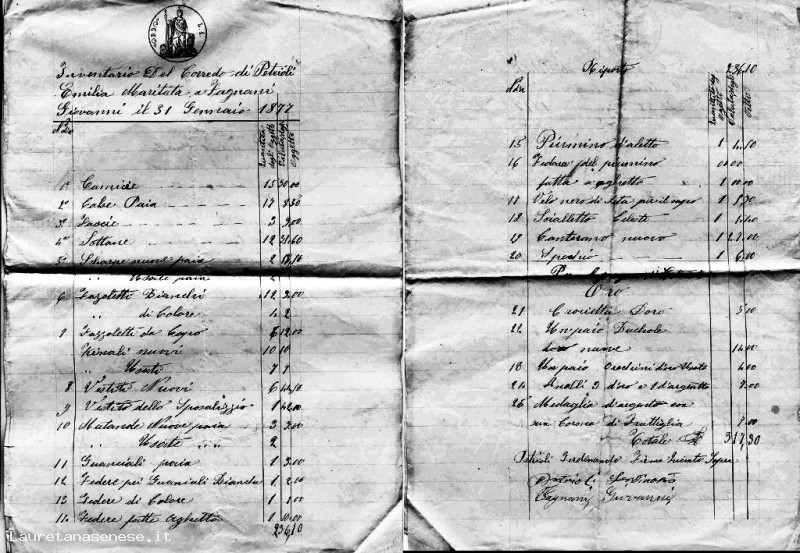 Inventario Del Corredo di Petrioli
Emilia Maritata a Fagnani
Giovanni il 31 Gennaio 1877
Quantità degli Oggetti
Oggetto
1° Camicie 15 30.00
2° Calze Paia 17 8.50
3° 3 3.00
4° Sottane 12 31.60
5° Scarpe nuove paia 2
" Usate paia 2
6 Fazzoletti Bianchi 12 3.00
" di Colore 4 2
7 Fazzoletti da Capo 6 12.00
Grenali nuovi 10 10
" Usati 7 7
8 Vestiti Nuovi 6
9 Vestito dello Sposalizio 1 42.00
10 Mutande Nuove paia 3 3.00
" Usate " " 2
11 Guanciali paia 1 3.00
12 Federe per Guanciali Bianche 1 2.00
13 Federe di Colore 1 1.00
14 Federe fatte Aghetto 1 10.00
236,10
Riporto 236,10
Quantità degli oggetti
15 Piumino d'aletto 1
16 Federa pel piumino
fatta a aghetto 1 10.00
17 Velo nero di Seta per il capo 1
18 Scialletto Celeste 1
19 Canterano nuovo 1
20 Specchio 1 6.00
Oro
21 Crocietta Doro 5.00
22 Un paio Buchole
nuove 14.00
Un paio Orecchini doro Usate 4.00
24 Anelli 3 d'oro e 1 d'argento 8.00
25 Medaglia d'argento con
una Corona di
Totale 317,30
Petrioli Ferdinando Firmo Quanto Sopra
Fagnani Giovanni
Lauretanasenese.it